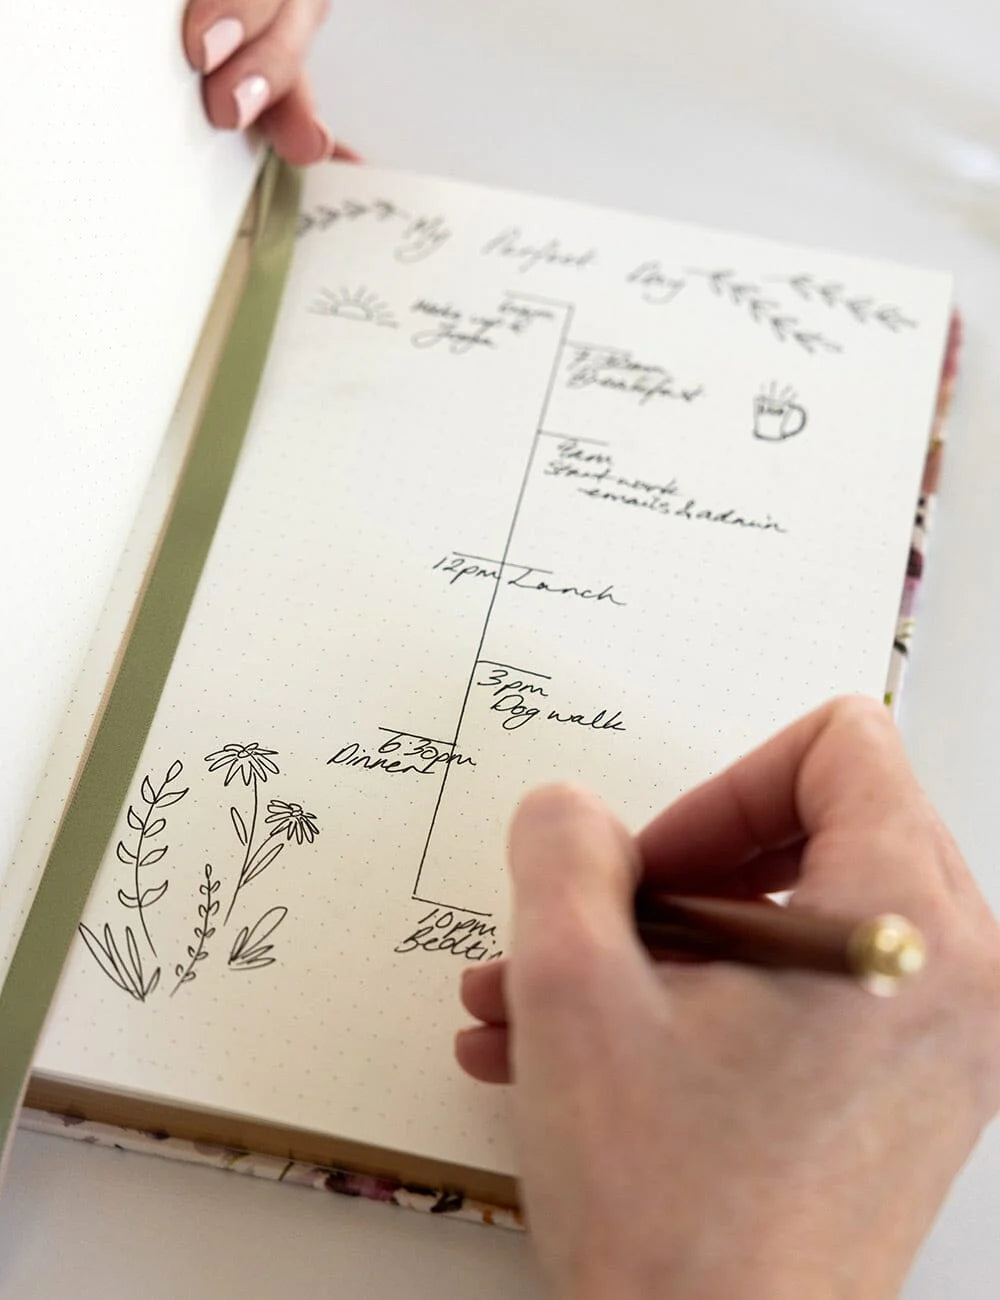 My Perfect Day
Wake up &
yoga
7:30am
Breakfast
9am
start work
emails & admin
12pm Lunch
3pm
Dog walk
6:30pm
Dinner
10pm
Bedti